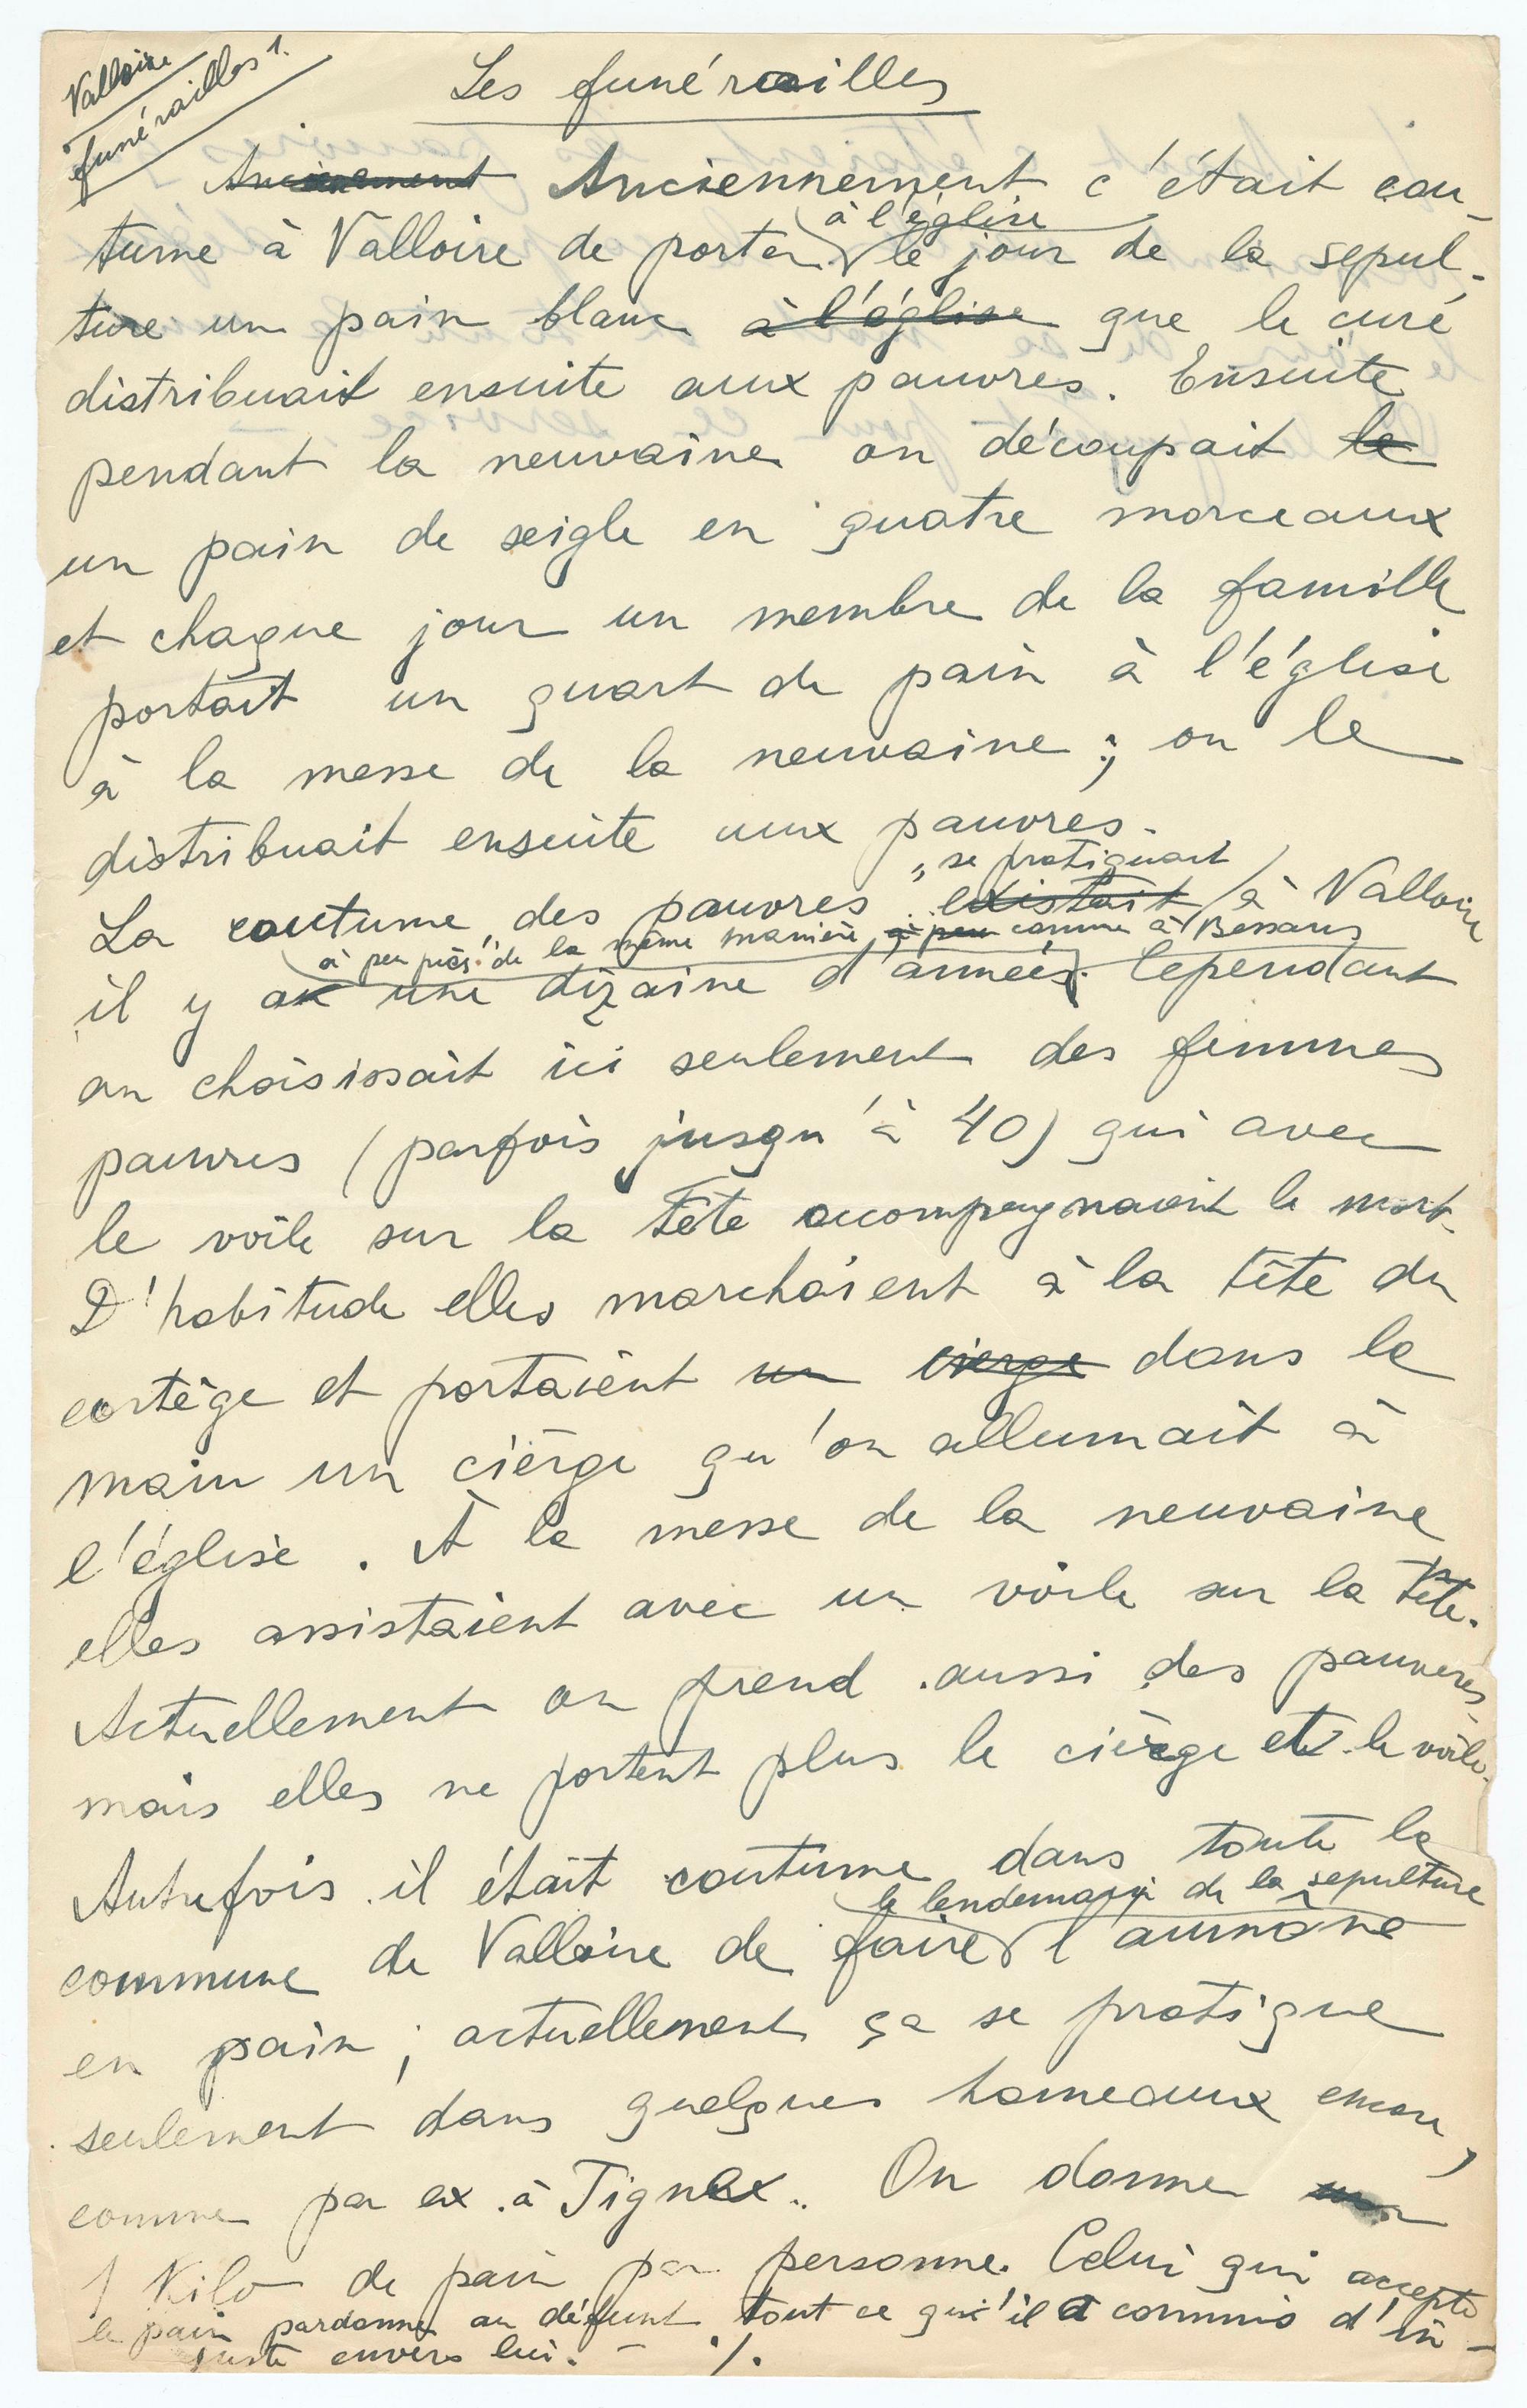 Valloire
funérailles 1.
Les funérailles
Anciennement Anciennement c'était cou-
à l'église
tume à Valloire de porter le jour de la sepul-
ture un pain blanc à l'église que le curé
distribuait ensuite aux pauvres. Ensuite
pendant la neuvaine on découpait le
un pain de seigle en quatre morceaux
et chaque jour un membre de la famille
portait un quart de pain à l'église
à la messe de la neuvaine ; on le
distribuait ensuite aux pauvres.
se pratiquait
La coutume „des pauvres„ existait à Valloire
à peu près de la même manière à peu comme à Bessans
il y a une dizaine d'années. Cependant
on choisissait ici seulement des femmes
pauvres (parfois jusqu'à 40) qui avec
le voile sur la tête accompagnavait le mort.
D'habitude elles marchaient à la tête du
cortège et portaient un cierge dans la
main un cièrge qu'on allumait à
l'église. À la messe de la neuvaine
elles assistaient avec un voile sur la tête.
Actuellement on prend aussi des pauvres,
mais elles ne portent plus le cièrge et le voile.
Autrefois il était coutume dans toute la
le lendemain de la sepulture
commune de Valloire de faire l'aumône
en pain ; actuellement ça se pratique
seulement dans quelques hameaux encore,
comme par ex. à Tignex.. On donne un
1 Kilo de pain par personne. Celui qui accepte
le pain pardonne au défunt tout ce qui'il a commis d'in-
juste envers lui. – ·/.